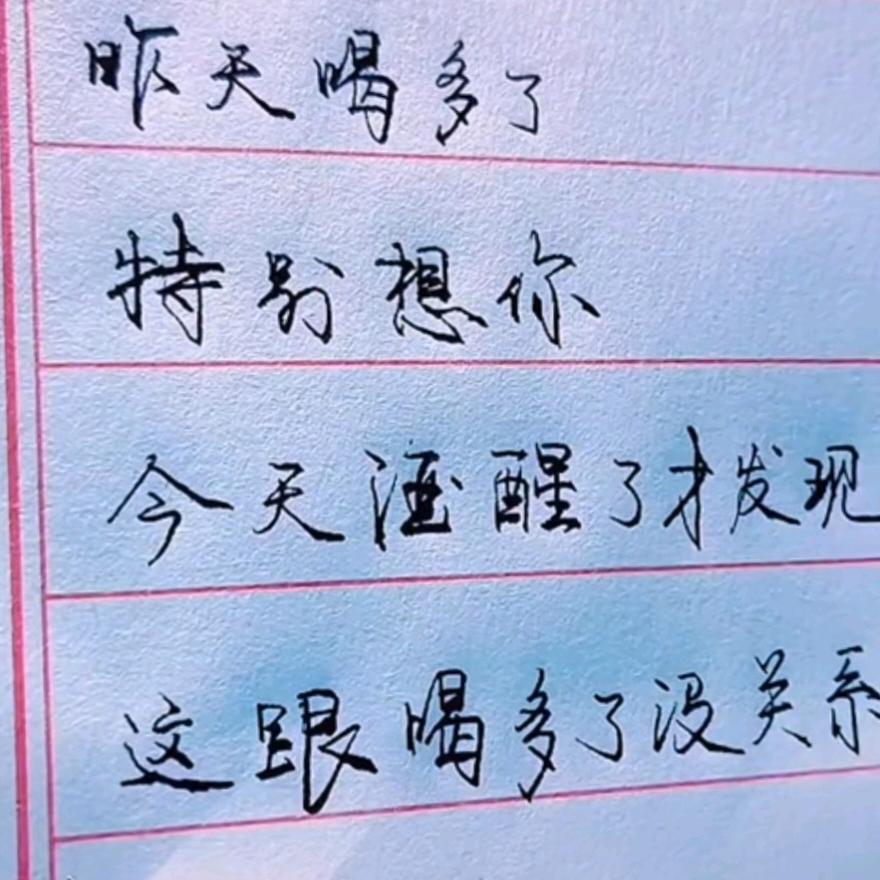 昨天喝多了
特别想你
今天酒醒了才发现
这跟喝多了没关系